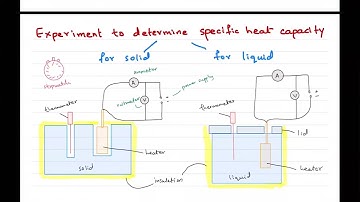 Experiment to determine specific heat capacity
for solid
for liquid
ammeter
A
voltmeter
V
power supply
stopwatch
thermometer
heater
solid
insulation
A
V
thermometer
lid
heater
liquid